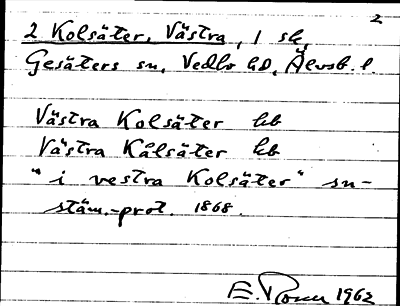 2
2 Kolsäter, Västra, 1 sk,
Gesäters sn, Vedbo hd, Älvsb. l.
Västra Kolsäter hb
Västra Kålsäter kb
"i vestra Kolsäter" sn-
stäm.-prot. 1868.
E. 1962